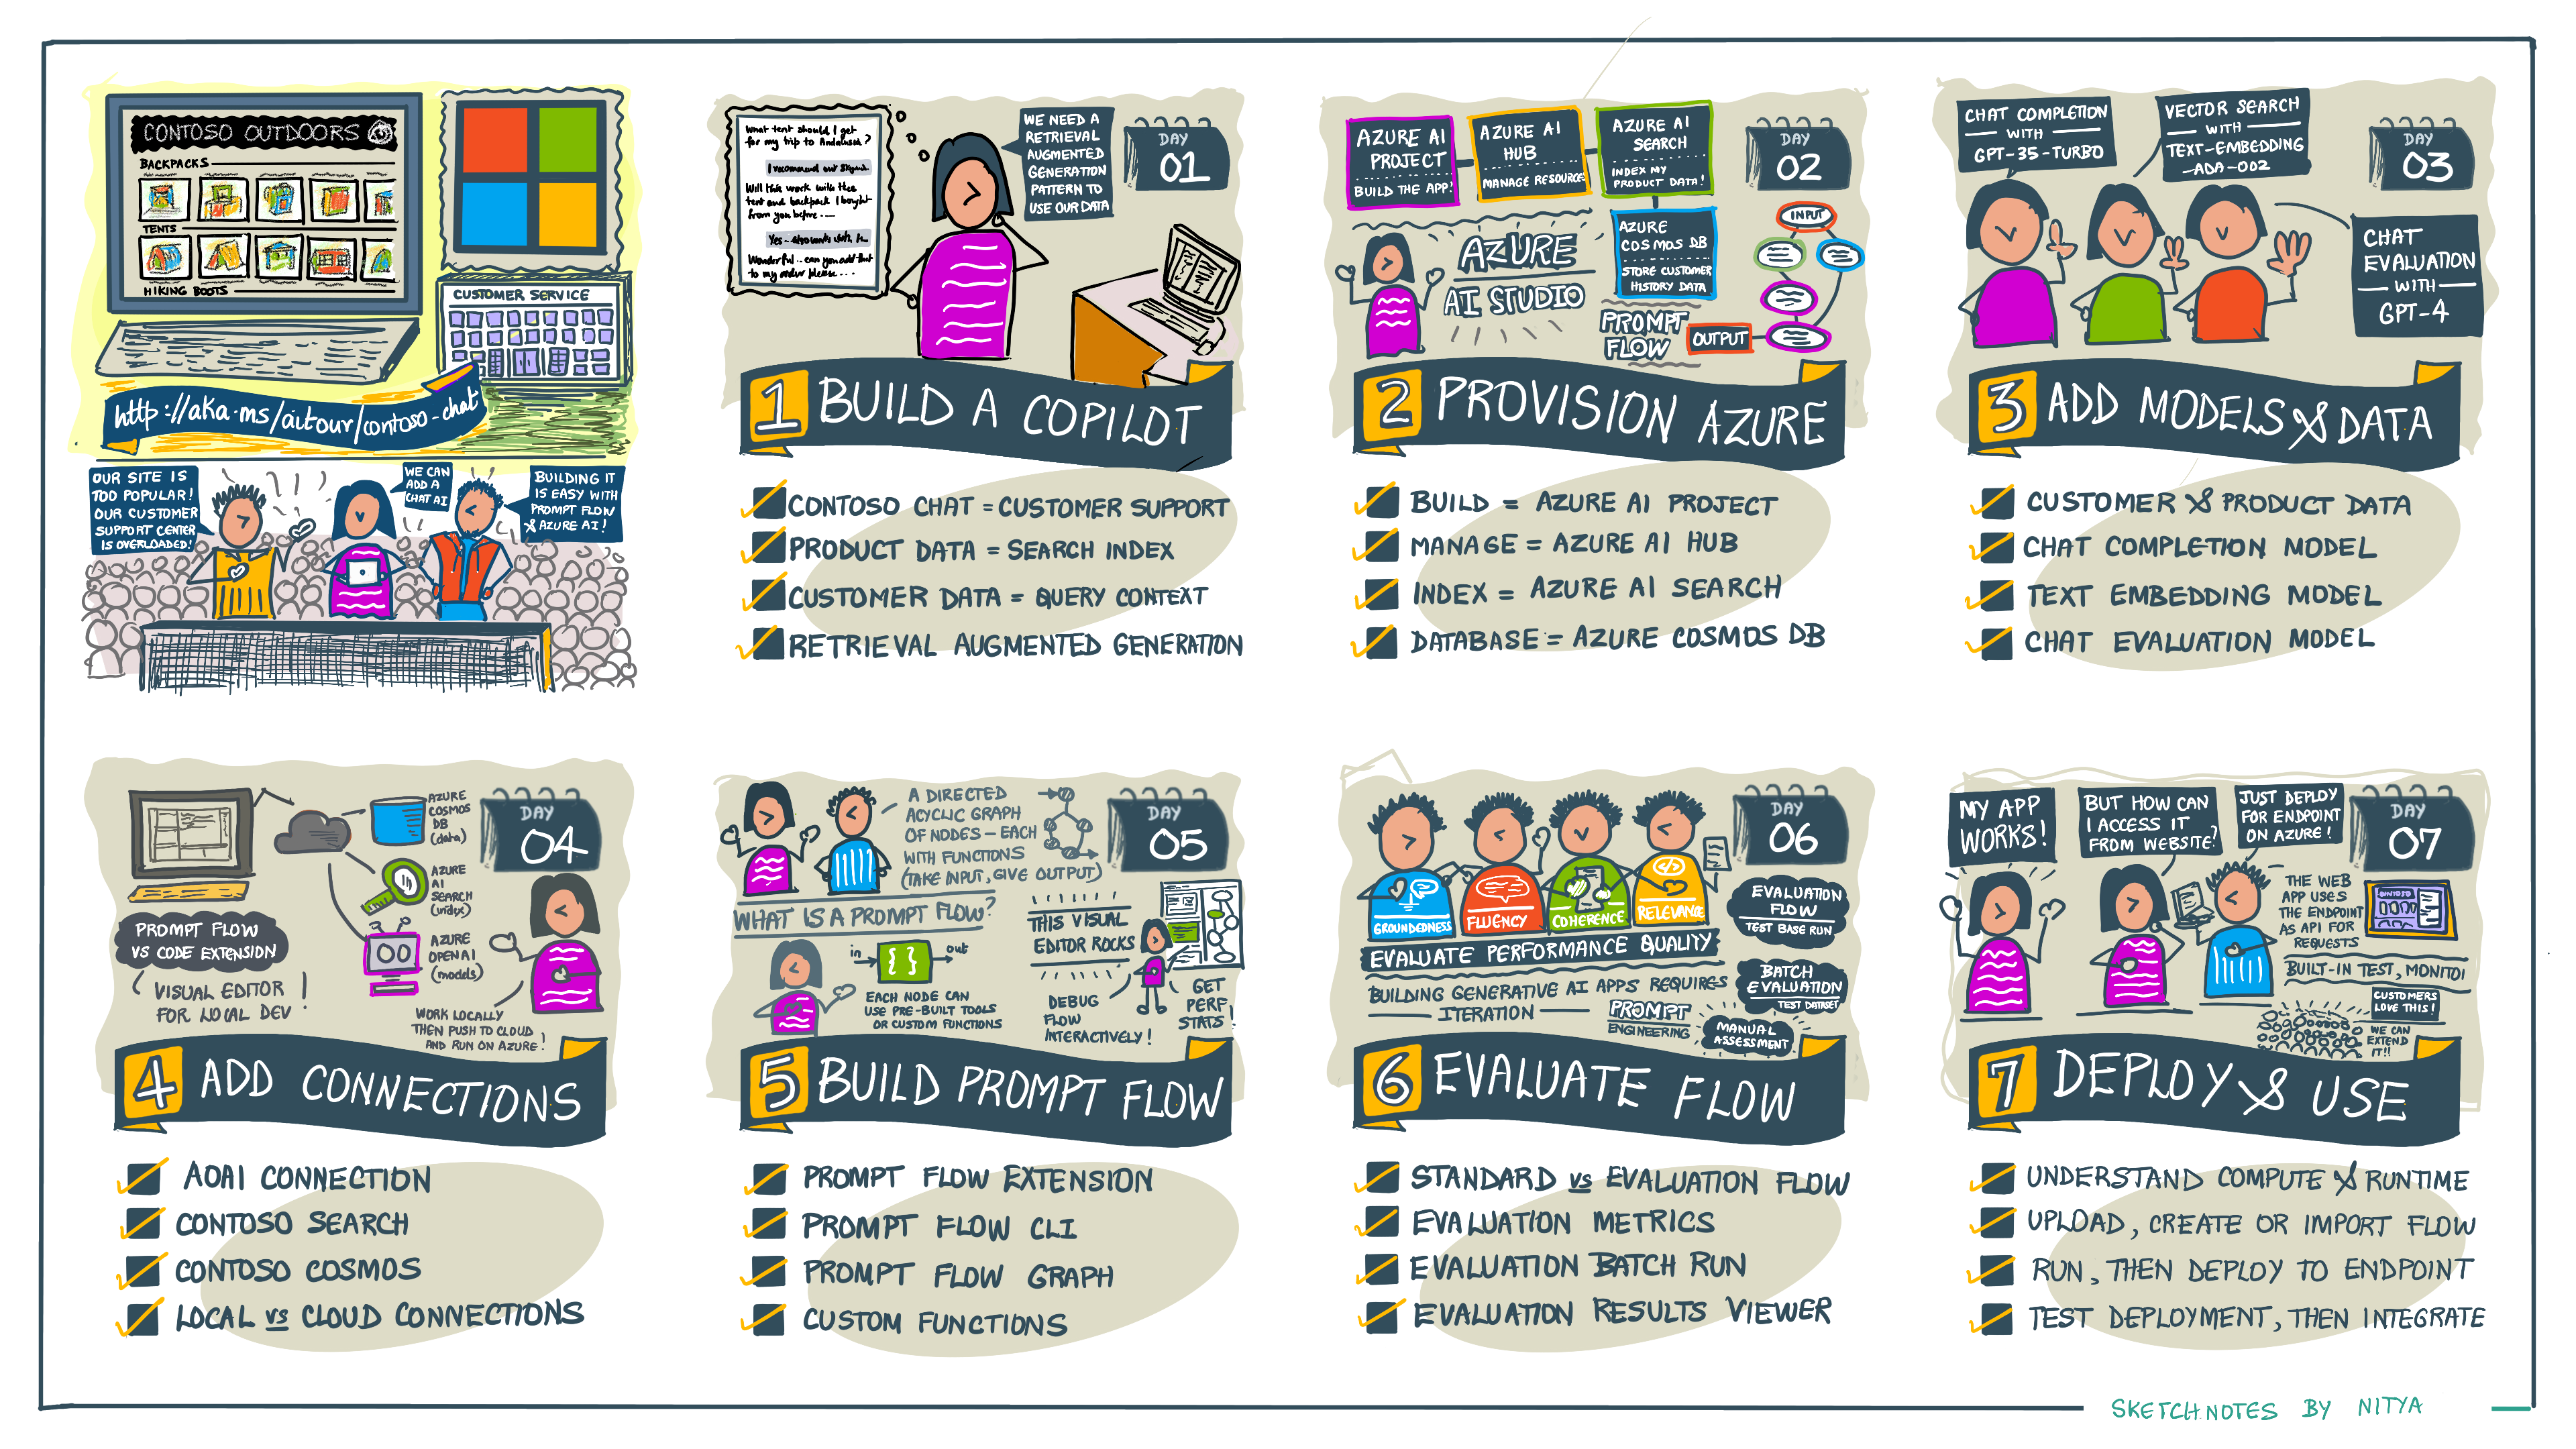 CONTOSO OUTDOORS
BACKPACKS
TENTS
HIKING BOOTS
CUSTOMER SERVICE
http://aka.ms/aitour/contoso-chat
OUR SITE IS
TOO POPULAR!
OUR CUSTOMER
SUPPORT CENTER
IS OVERLOADED!
WE CAN
ADD A
CHAT AI
BUILDING IT
IS EASY WITH
PROMPT FLOW
& AZURE AI!
What tent should I get
for my trip to Andalusia?
I recommend our
Will this work with the
tent and backpack I bought
from you before....
Yes -
Wonderful.. can you add that
to my order please....
WE NEED A
RETRIEVAL
AUGMENTED
GENERATION
PATTERN TO
USE OUR DATA
DAY
01
1 BUILD A COPILOT
CONTOSO CHAT = CUSTOMER SUPPORT
PRODUCT DATA = SEARCH INDEX
CUSTOMER DATA = QUERY CONTEXT
RETRIEVAL AUGMENTED GENERATION
AZURE AI
PROJECT
BUILD THE APP!
AZURE AI
HUB
MANAGE RESOURCES
AZURE AI
SEARCH
INDEX MY
PRODUCT DATA!
DAY
02
AZURE
AI STUDIO
AZURE
COSMOS DB
STORE CUSTOMER
HISTORY DATA
INPUT
PROMPT
FLOW
OUTPUT
2 PROVISION AZURE
BUILD = AZURE AI PROJECT
MANAGE = AZURE AI HUB
INDEX = AZURE AI SEARCH
DATABASE = AZURE COSMOS DB
CHAT COMPLETION
WITH
GPT-35-TURBO
VECTOR SEARCH
WITH
TEXT-EMBEDDING
-ADA-002
DAY
03
CHAT
EVALUATION
WITH
GPT-4
3 ADD MODELS & DATA
CUSTOMER & PRODUCT DATA
CHAT COMPLETION MODEL
TEXT EMBEDDING MODEL
CHAT EVALUATION MODEL
AZURE
COSMOS
DB
(data)
AZURE
AI
SEARCH
(index)
AZURE
OPENAI
(models)
DAY
04
PROMPT FLOW
VS CODE EXTENSION
VISUAL EDITOR
FOR LOCAL DEV!
WORK LOCALLY
THEN PUSH TO CLOUD
AND RUN ON AZURE!
4 ADD CONNECTIONS
AOAI CONNECTION
CONTOSO SEARCH
CONTOSO COSMOS
LOCAL vs CLOUD CONNECTIONS
A DIRECTED
ACYCLIC GRAPH
OF NODES - EACH
WITH FUNCTIONS
(TAKE INPUT, GIVE OUTPUT)
DAY
05
WHAT IS A PROMPT FLOW?
in
{ }
out
EACH NODE CAN
USE PRE-BUILT TOOLS
OR CUSTOM FUNCTIONS
THIS VISUAL
EDITOR ROCKS
DEBUG
FLOW
INTERACTIVELY!
GET
PERF
STATS!
5 BUILD PROMPT FLOW
PROMPT FLOW EXTENSION
PROMPT FLOW CLI
PROMPT FLOW GRAPH
CUSTOM FUNCTIONS
GROUNDEDNESS
FLUENCY
COHERENCE
</>
RELEVANCE
DAY
06
EVALUATE PERFORMANCE QUALITY
EVALUATION
FLOW
TEST BASE RUN
BUILDING GENERATIVE AI APPS REQUIRES
ITERATION
BATCH
EVALUATION
TEST DATASET
PROMPT
ENGINEERING
MANUAL
ASSESSMENT
6 EVALUATE FLOW
STANDARD vs EVALUATION FLOW
EVALUATION METRICS
EVALUATION BATCH RUN
EVALUATION RESULTS VIEWER
MY APP
WORKS!
BUT HOW CAN
I ACCESS IT
FROM WEBSITE?
JUST DEPLOY
FOR ENDPOINT
ON AZURE!
DAY
07
THE WEB
APP USES
THE ENDPOINT
AS API FOR
REQUESTS
CONTOSO
BUILT-IN TEST, MONITOR
CUSTOMERS
LOVE THIS!
WE CAN
EXTEND
IT!!
7 DEPLOY & USE
UNDERSTAND COMPUTE & RUNTIME
UPLOAD, CREATE OR IMPORT FLOW
RUN, THEN DEPLOY TO ENDPOINT
TEST DEPLOYMENT, THEN INTEGRATE
SKETCHNOTES BY NITYA